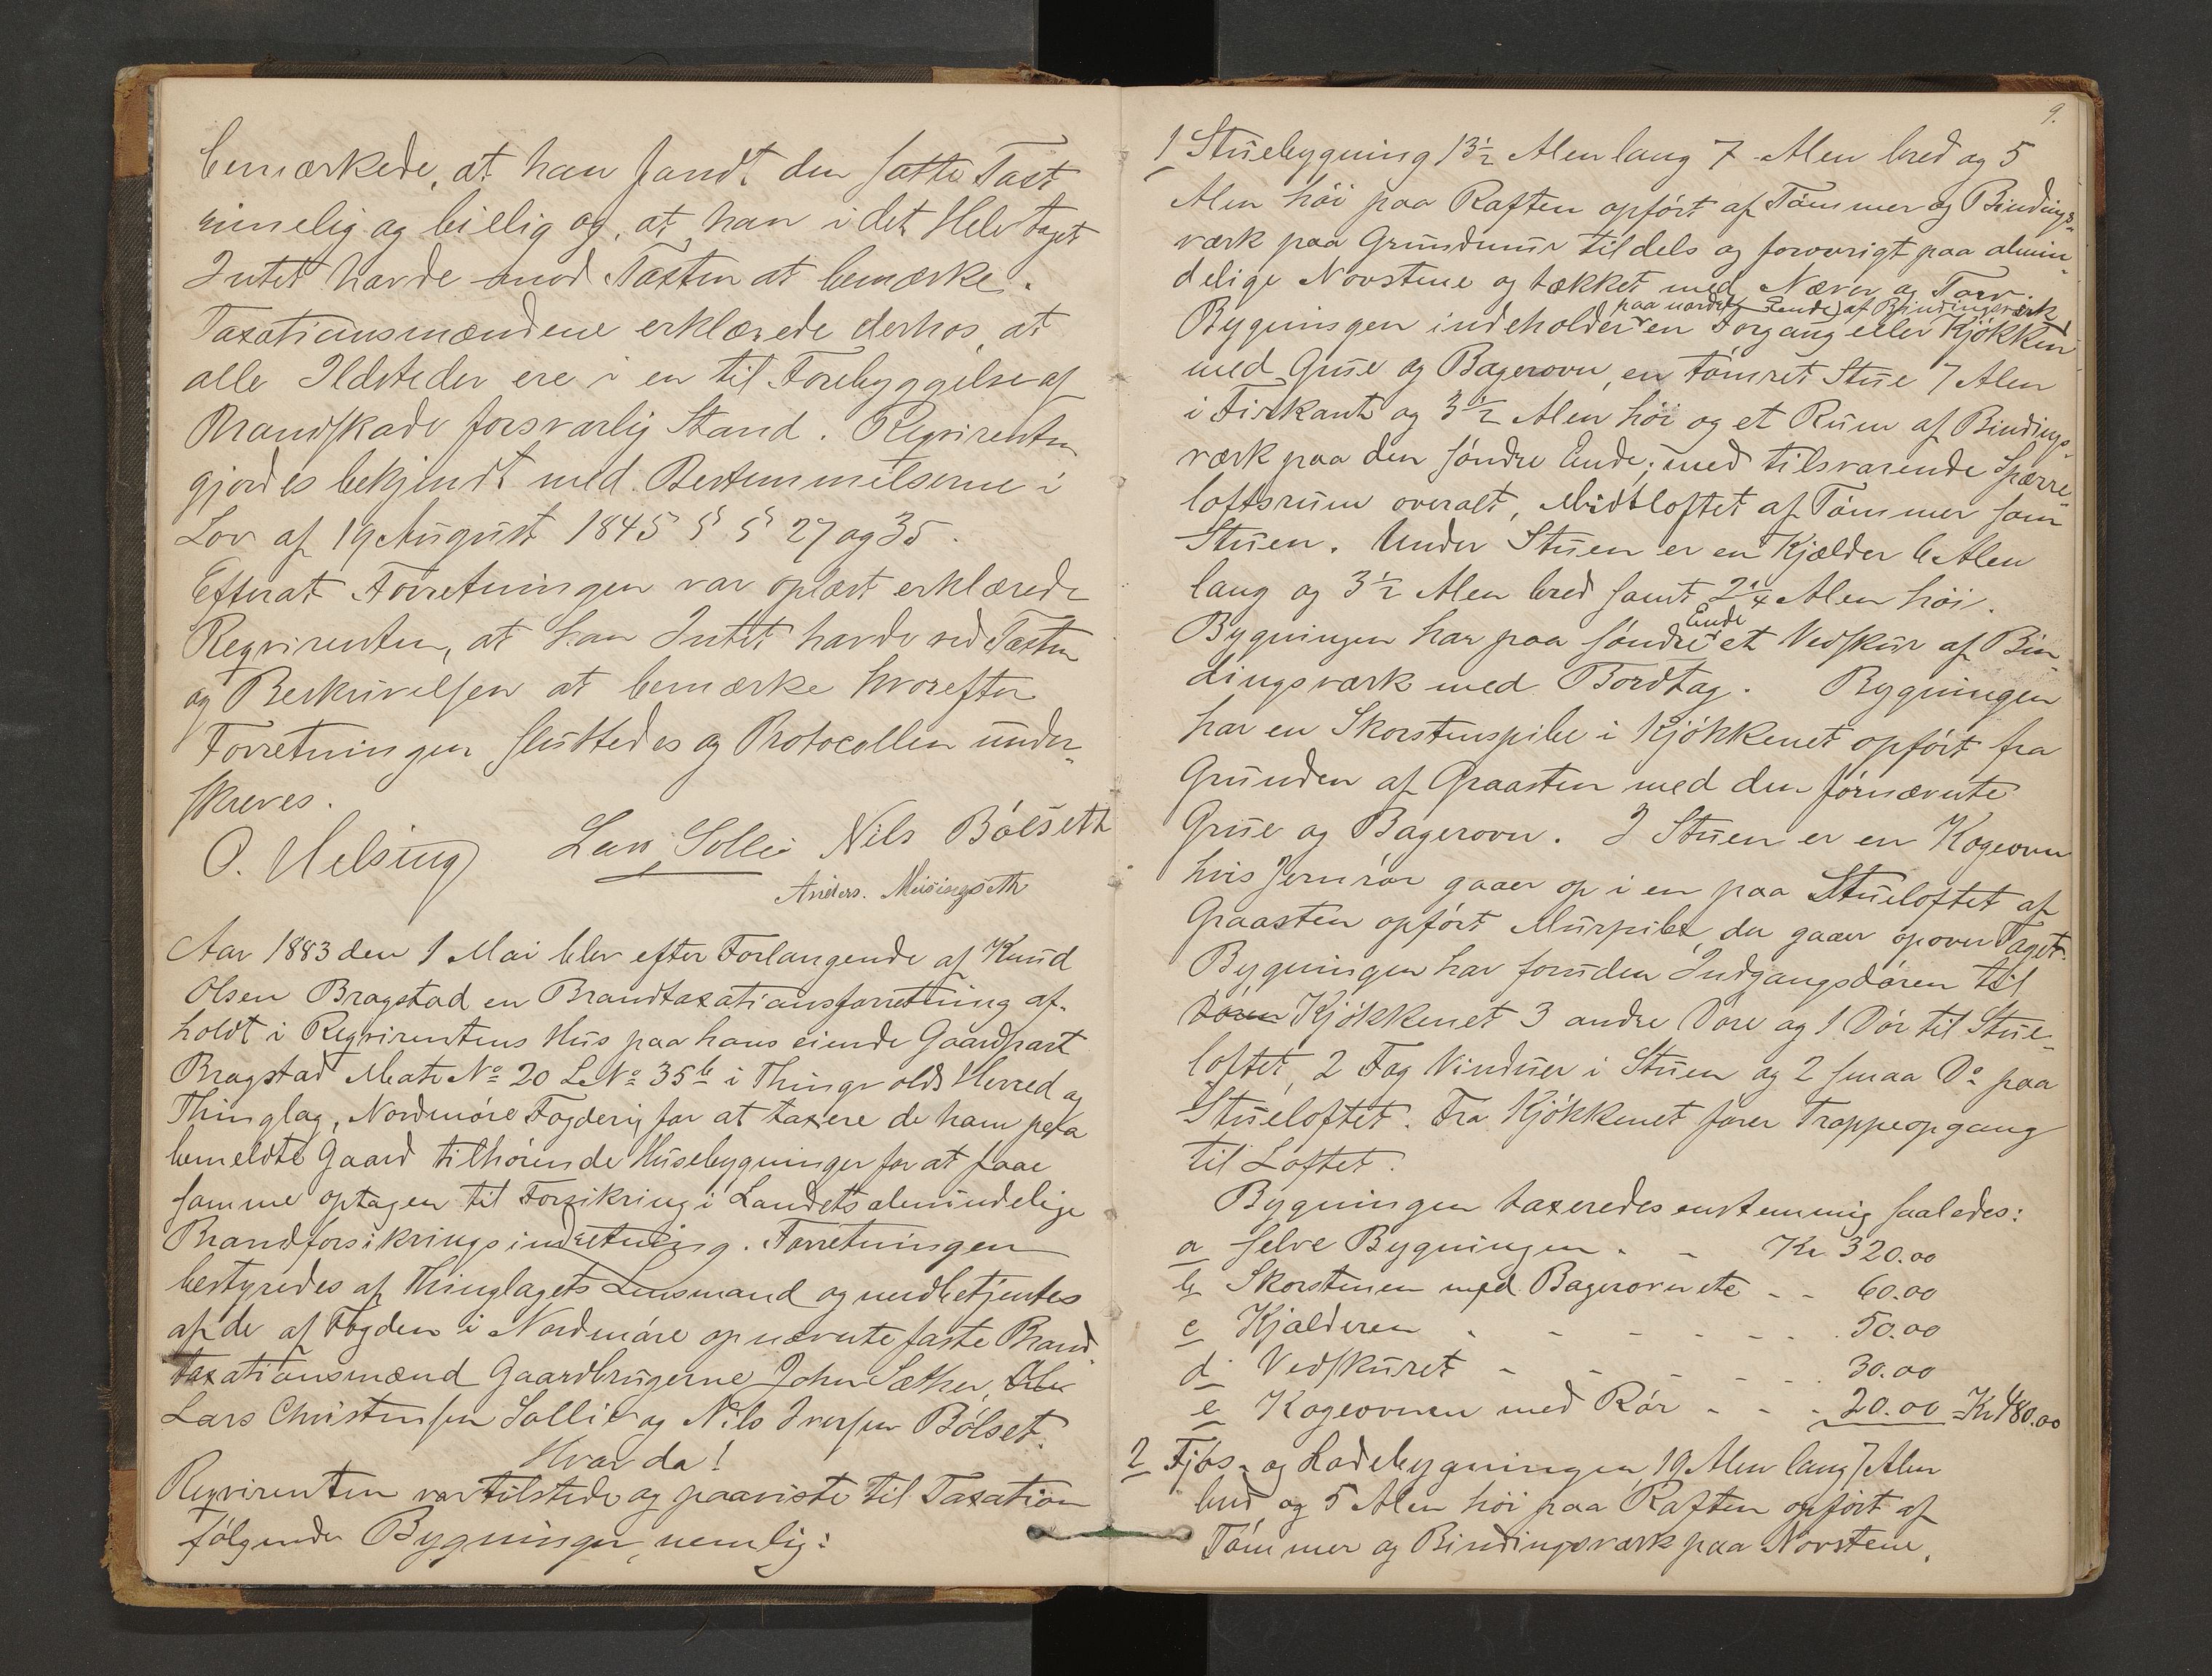 bemærkede, at han fandt den satte Taxt
rimelig og billig og, at han i det Hele taget
Intet havde mod Taxten at bemærke.
Taxationsmændene erklærede derhos, at
alle Ildsteder ere i en til Forebyggelse af
Brandskade forsvarlig Stand. Reqvirenten
gjordes bekjendt med Bestemmelserne i
Lov af 19 August 1845 § § 27 og 35.
Efterat Forretningen var oplæst erklærede
Reqvirenten, at han Intet havde ved Taxten
og Beskrivelsen at bemærke hvorefter
Forretningen sluttedes og Protocollen under-
skreves.
O. Helsing Lars Sollie Nils Bölseth
Anders. Meisingseth
Aar 1883 den 1 Mai blev efter Forlangende af Knud
Olsen Bragstad en Brandtaxationsforretning af-
holdt i Reqvirentens Hus paa hans eiende Gaardpart
Bragstad Matr No 20 L No 35b i Thingvolds Herred og
Thinglag, Nordmöre Fogderi, for at taxere de ham paa
bemeldte Gaard tilhörende Husebygninger for at faae
samme optagen til Forsikring i Landets almindelige
Brandforsikringsindretning. Forretningen
bestyredes af Thinglagets Lensmand og medbetjentes
af de af Fogden i Nordmöre opnævnte faste Brand-
taxationsmænd Gaardbrugerne John Sæther, Ole
Lars Christensen Sollie og Nils Iversen Bölset.
Hvorda!
Reqvirenten var tilstede og paaviste til Taxation
fölgende Bygninger, nemlig:
9.
1 Stuebygning 13½ Alen lang 7 Alen bred og 5
Alen höi paa Raften opfört af Tömmer og Bindings-
værk paa Grundmur tildels og forövrigt paa almin-
delige Novstene og tækket med Næver og Torv.
paa nordre Ende af Bindingsværk
Bygningen indeholder en Forgang eller Kjökken
med Grue og Bagerovn, en tömret Stue 7 Alen
i Firkant og 3½ Alen höi og et Rum af Bindings-
værk paa den söndre Ende; med tilsvarende Sperre-
loftsrum overalt, Midtloftet af Tömmer som
Stuen. Under Stuen er en Kjælder 6 Alen
lang og 3½ Alen bred samt 2¼ Alen höi.
Ende
Bygningen har paa söndre et Vedskur af Bin-
dingsværk med Bordtag. Bygningen
har en Skorstenspibe i Kjökkenet opfört fra
Grunden af Graasten med den förnævnte
Grue og Bagerovn. I Stuen er en Kogeovn
hvis Jernrör gaaer op i en paa Stueloftet af
Graasten opfört Murpibe, der gaaer op over Taget.
Bygningen har foruden Indgangsdören til
Dören Kjökkenet 3 andre Döre og 1 Dör til Stue-
loftet, 2 Fag Vinduer i Stuen og 2 smaa Do paa
Stueloftet. Fra Kjökkenet förer Trappeopgang
til Loftet.
Bygningen taxeredes enstemmig saaledes:
a Selve Bygningen . - Kr 320.00
b Skorstenen med Bagerovn etc - - 60.00
c Kjælderen . - - - - - 50.00
d Vedskuret - - - - - 30.00
e Kogeovnen med Rör - - - 20.00 = Kr 480.00
2 Fjös- og Ladebygningen 19 Alen lang 7 Alen
bred og 5 Alen höi paa Raften opfört af
Tömmer og Bindingsværk paa Novstene,